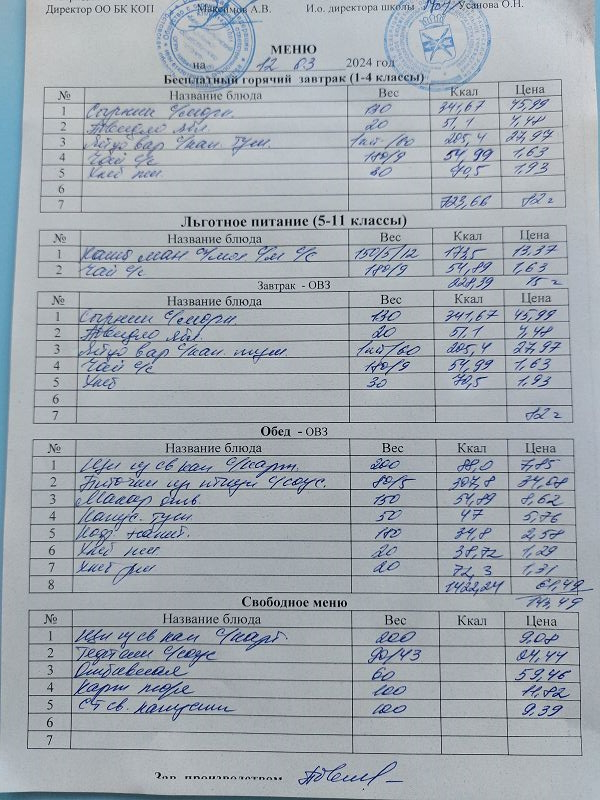 Директор ОО БК КОП Максимов А.В. И.о. директора школы Усанова О.Н.
МЕНЮ
на 12 03 2024 год
Бесплатный горячий завтрак (1-4 классы)
№ Название блюда Вес Ккал Цена
1 Сырники с/морк. 130 341,67 45,99
2 Повидло ябл. 20 51,1 4,48
3 Яйцо вар с/кап. туш. 1шт/60 205,4 27,97
4 Чай с/с 180/9 54,99 1,63
5 Хлеб пш. 30 70,5 1,93
6
7 723,66 82
Льготное питание (5-11 классы)
№ Название блюда Вес Ккал Цена
1 Каша ман с/мол с/м с/с 150/5/12 173,5 13,37
2 Чай с/с 180/9 54,89 1,63
228,39 15
Завтрак - ОВЗ
№ Название блюда Вес Ккал Цена
1 Сырники с/морк. 130 341,67 45,99
2 Повидло ябл. 20 51,1 4,48
3 Яйцо вар с/кап. туш. 1шт/60 205,4 27,97
4 Чай с/с 180/9 54,99 1,63
5 Хлеб 30 70,5 1,93
6
7 82
Обед - ОВЗ
№ Название блюда Вес Ккал Цена
1 Щи из св кап с/карт. 200 88,0 7,85
2 Биточки из птицы с/соус. 80/5 307,8 34,08
3 Макар отв. 150 54,89 8,62
4 Капус. туш 50 47 5,76
5 180 34,8 2,58
6 Хлеб пш. 20 38,72 1,29
7 Хлеб рж 20 72,3 1,31
8 1422,24 61,49
143,49
Свободное меню
№ Название блюда Вес Ккал Цена
1 Щи из св кап с/карт. 200 9.08
2 Тефтели с/соус 90/43 24,44
3 Отбивная 60 59,46
4 Карт пюре 100 11,82
5 Ст св. капусты 100 9,39
6
7
Зав. производством